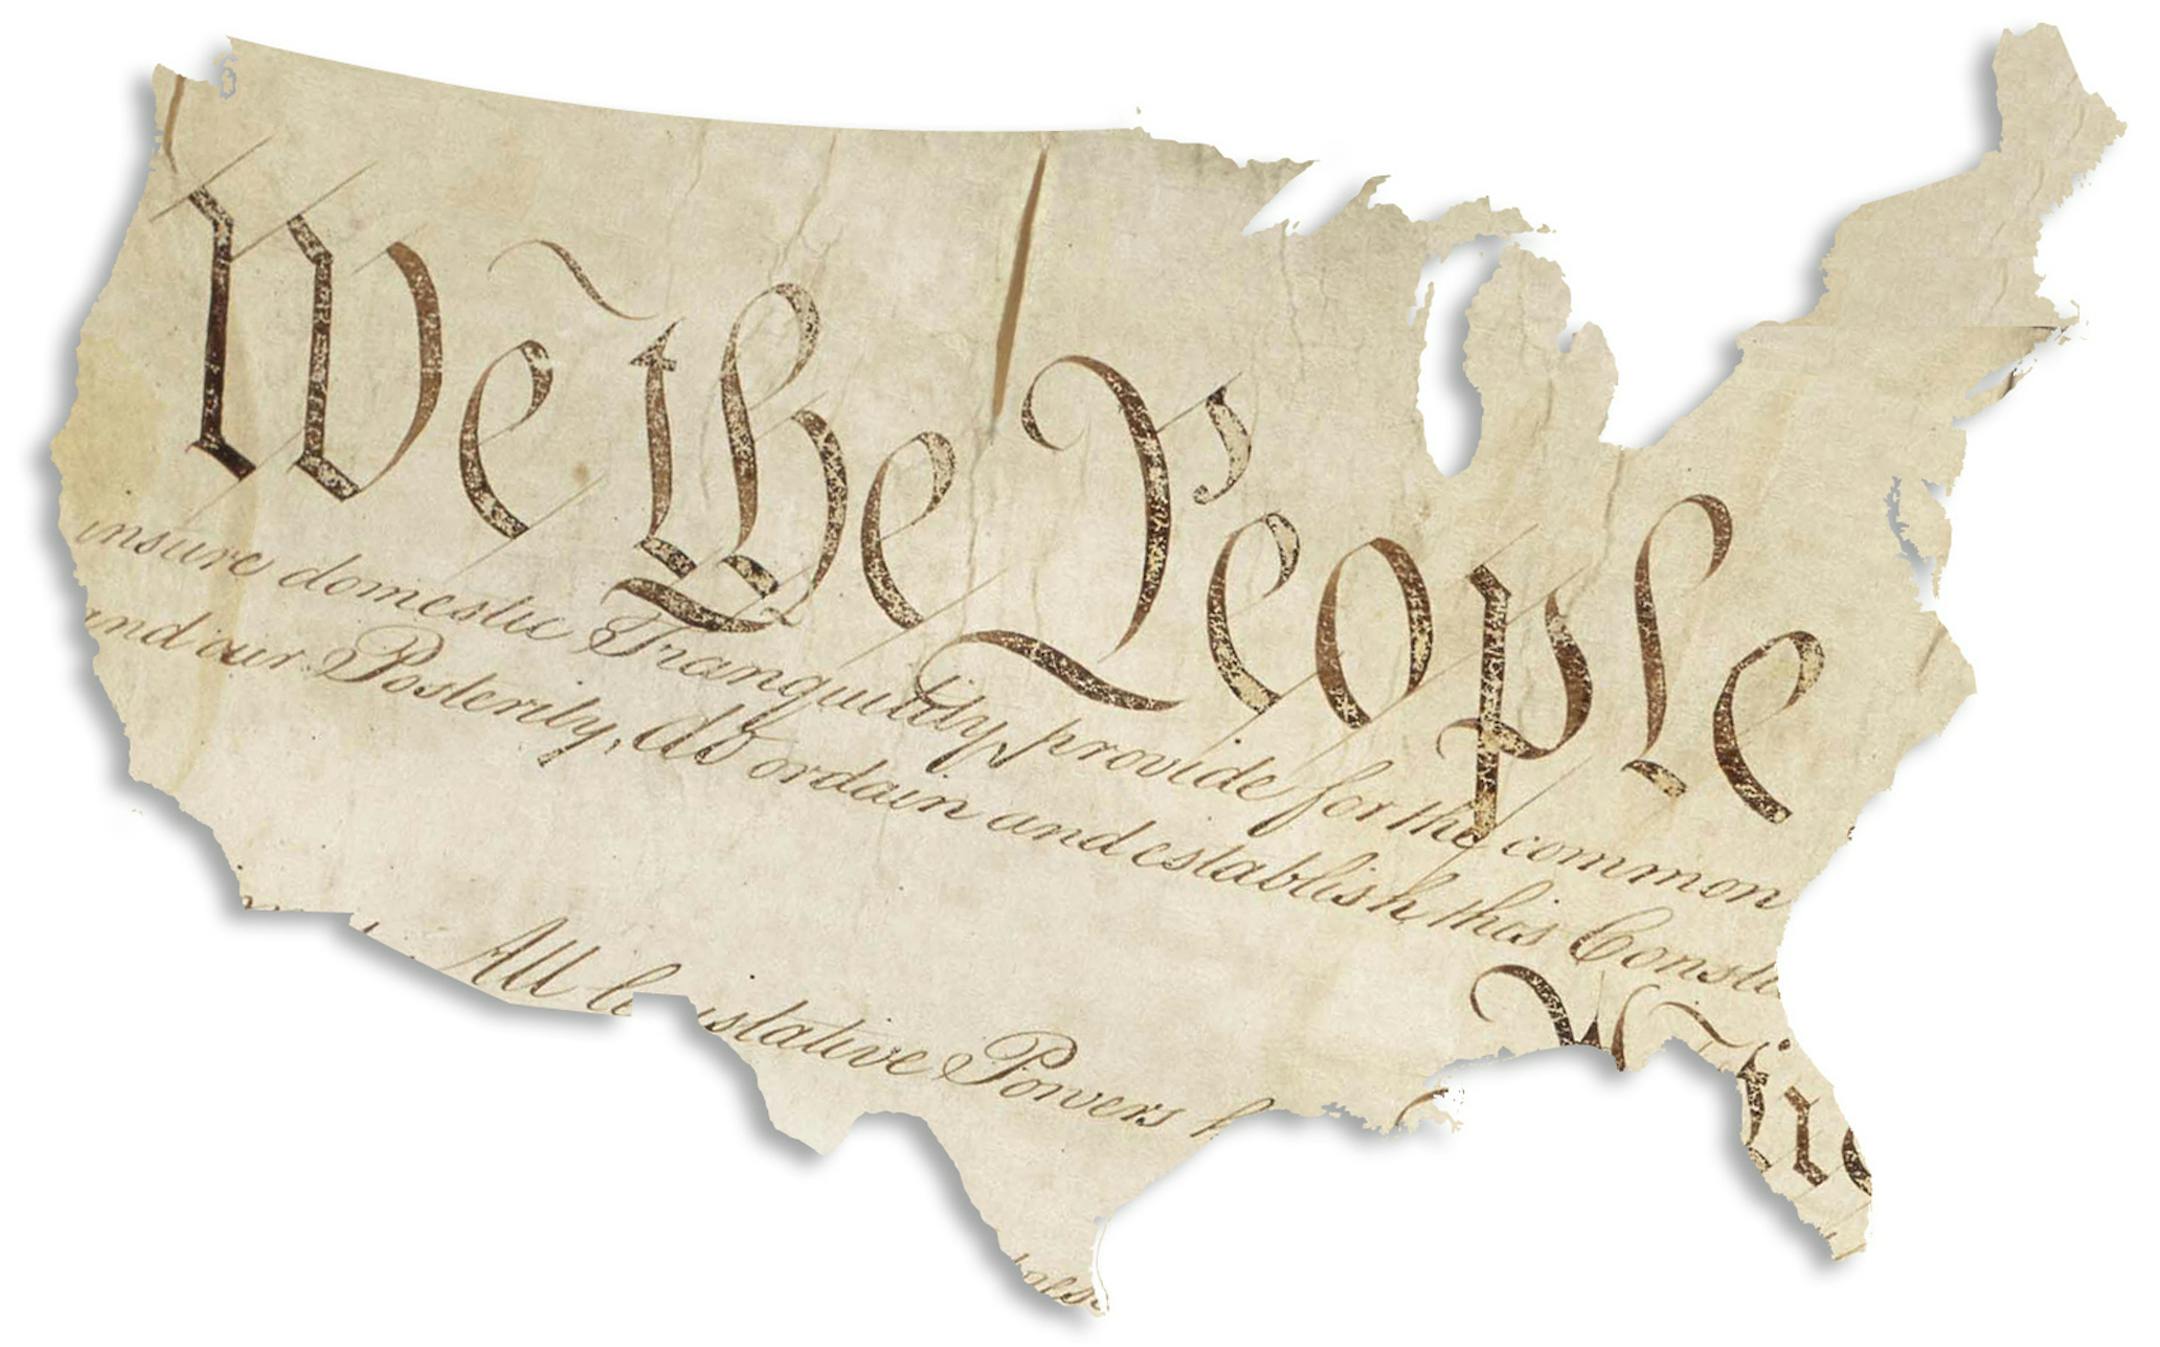 We the People
insure domestic Tranquility, provide for the common
and our Posterity, do ordain and establish this Constit
All legislative Powers h